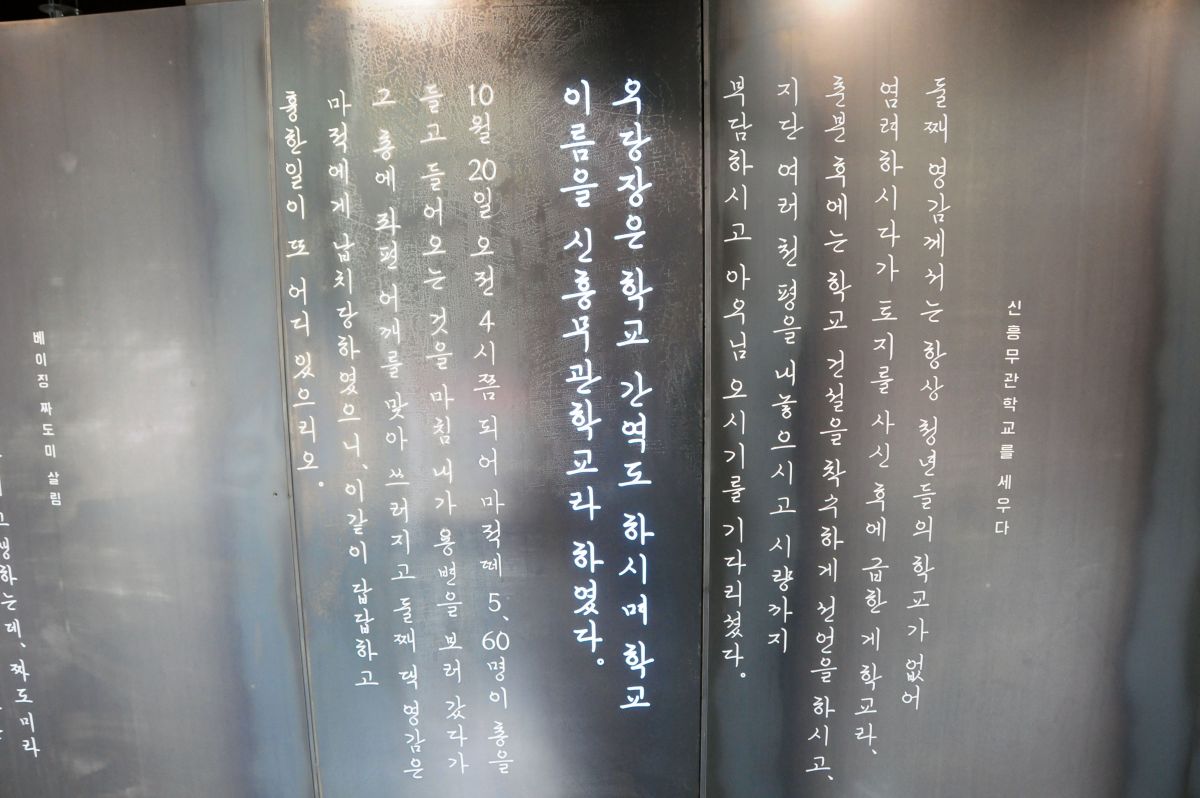 신흥무관학교를 세우다
둘째 영감께서는 항상 청년들의 학교가 없어
염려하시다가 토지를 사신 후에 급한 게 학교라,
춘분 후에는 학교 건설을 착수하게 선언을 하시고,
지단 여러 천 평을 내놓으시고 시량까지
부담하시고 아우님 오시기를 기다리셨다.
우당장은 학교 간역도 하시며 학교
이름을 신흥무관학교라 하였다.
10월 20일 오전 4시쯤 되어 마적떼 5, 60명이 총을
들고 들어오는 것을 마침 내가 용변을 보러 갔다가
그 총에 좌편 어깨를 맞아 쓰러지고 둘째 댁 영감은
마적에게 납치당하였으니, 이같이 답답하고
흉한 일이 또 어디 있으리오.
베이징 짜도미 살림
고생하는데, 짜도미라